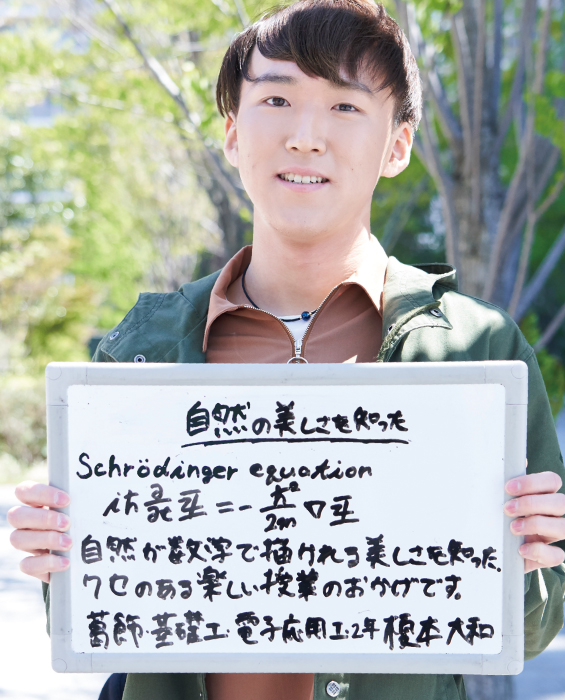 自然の美しさを知った
Schrödinger equation
iħ ∂/∂t Ψ = - ħ²/2m ∇ Ψ
自然が数学で描ける美しさを知った.
クセのある楽しい授業のおかげです。
葛飾・基礎工・電子応用工・2年 榎本大和